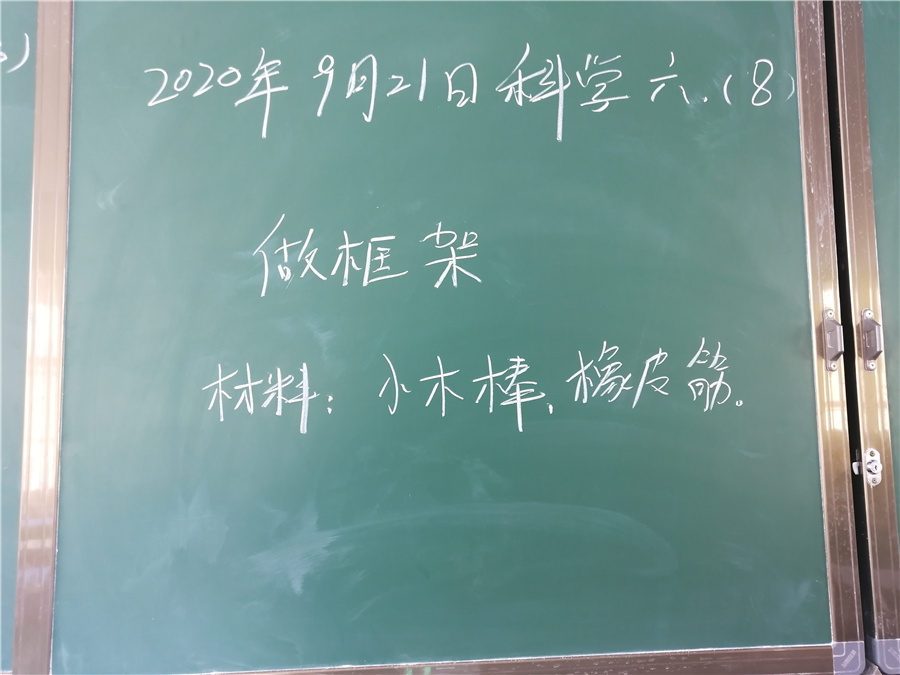 2020年9月21日科学六.(8)
做框架
材料：小木棒、橡皮筋。